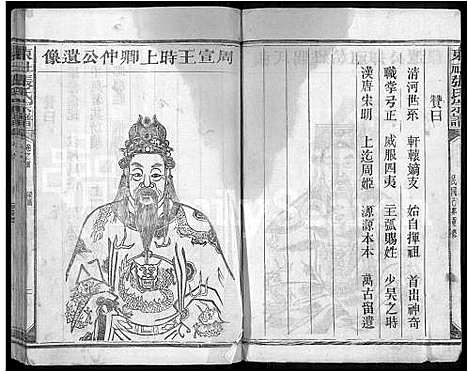 東□張氏宗譜
贊曰
清河世系　軒轅嫡支　始自揮祖　首出神奇
職掌弓正　威服四夷　主弧賜姓　少昊之時
漢唐宋明　上迄周姬　源源本本　萬古留遺
周宣王時上卿仲公遺像